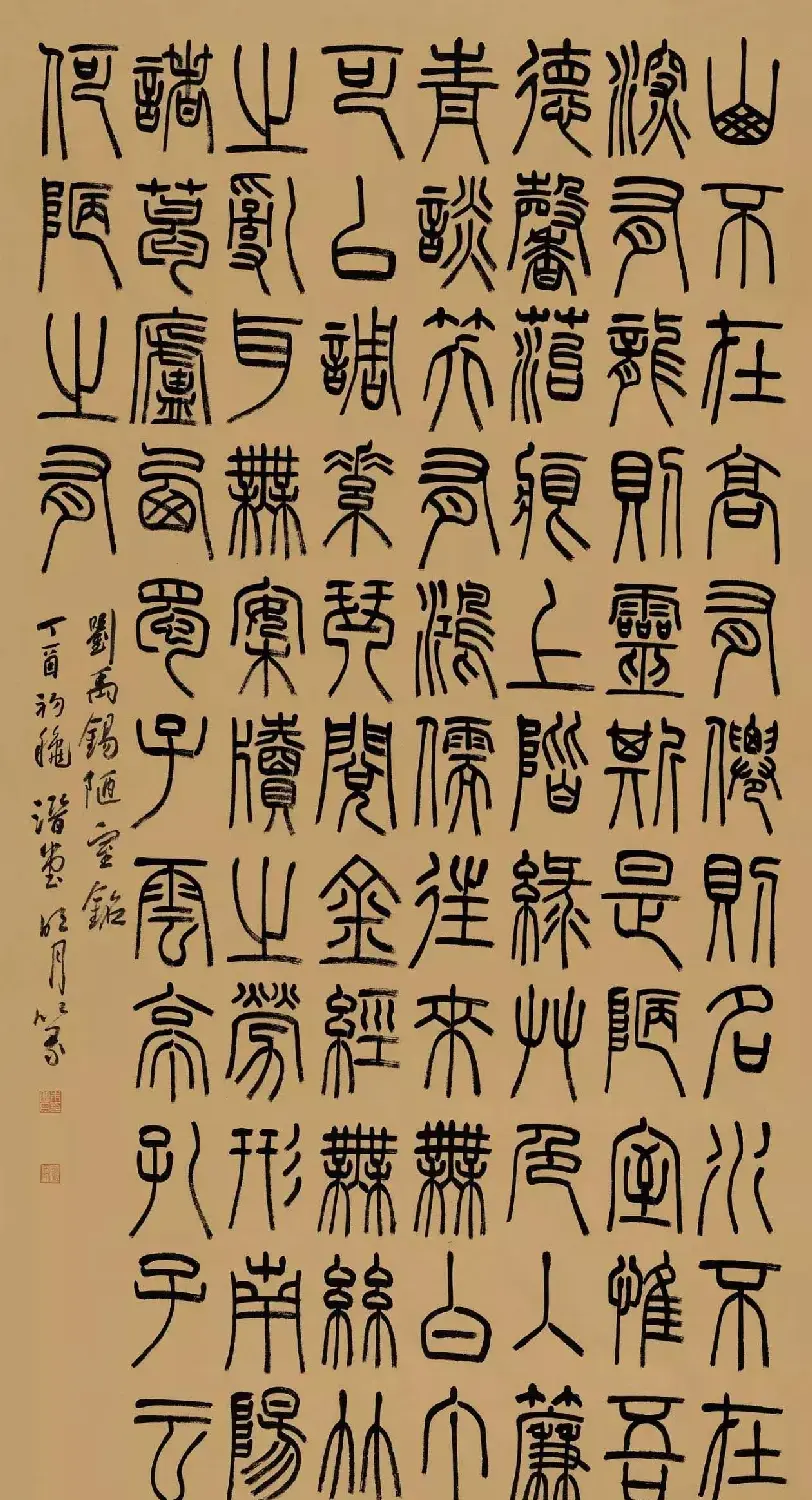 山不在高有僊則名水不在
深有龍則靈斯是陋室惟吾
德馨菭痕上階緑艸色入簾
青談笑有鴻儒往來無白丁
可以調素琴閱金經無絲竹
之亂耳無案牘之勞形南陽
諸葛廬西蜀子雲亭孔子云
何陋之有
劉禹錫陋室銘
丁酉初穐潛堂月篆